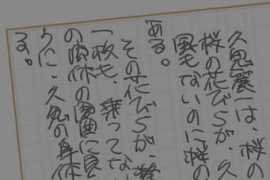 久鬼麗一は、桜の
桜の花びらが、久
風もないのに、桜の
ある。
その花びらが、
一枚も、乗ってな
の肉体の周囲に見
うに、久鬼の身体
す。